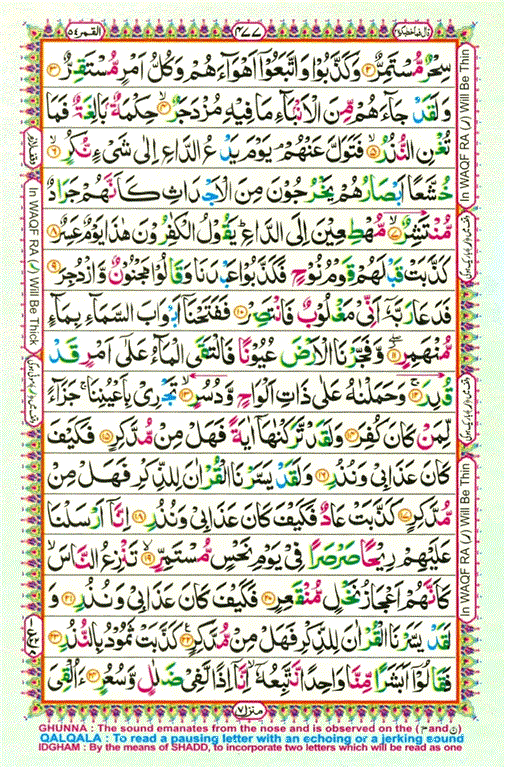 القمر ٥٤
٤٧٧
قال فما خطبكم ٢٧
سِحْرٌ مُّسْتَمِرٌّ ۝٢ وَكَذَّبُوْا وَاتَّبَعُوْٓا اَهْوَآءَهُمْ وَكُلُّ اَمْرٍ مُّسْتَقِرٌّ ۝٣
وَلَقَدْ جَآءَهُمْ مِّنَ الْاَنْۢبَآءِ مَا فِيْهِ مُزْدَجَرٌ ۝٤ حِكْمَةٌۢ بَالِغَةٌ فَمَا
تُغْنِ النُّذُرُ ۝٥ فَتَوَلَّ عَنْهُمْ ۘ يَوْمَ يَدْعُ الدَّاعِ اِلٰى شَىْءٍ نُّكُرٍ ۝٦
خُشَّعًا اَبْصَارُهُمْ يَخْرُجُوْنَ مِنَ الْاَجْدَاثِ كَاَنَّهُمْ جَرَادٌ
مُّنْتَشِرٌ ۝٧ مُّهْطِعِيْنَ اِلَى الدَّاعِ ۭ يَقُوْلُ الْكٰفِرُوْنَ هٰذَا يَوْمٌ عَسِرٌ ۝٨
كَذَّبَتْ قَبْلَهُمْ قَوْمُ نُوْحٍ فَكَذَّبُوْا عَبْدَنَا وَقَالُوْا مَجْنُوْنٌ وَّازْدُجِرَ ۝٩
فَدَعَا رَبَّهٗٓ اَنِّىْ مَغْلُوْبٌ فَانْتَصِرْ ۝١٠ فَفَتَحْنَآ اَبْوَابَ السَّمَآءِ بِمَآءٍ
مُّنْهَمِرٍ ۝١١ وَّفَجَّرْنَا الْاَرْضَ عُيُوْنًا فَالْتَقَى الْمَآءُ عَلٰٓى اَمْرٍ قَدْ
قُدِرَ ۝١٢ وَحَمَلْنٰهُ عَلٰى ذَاتِ اَلْوَاحٍ وَّدُسُرٍ ۝١٣ تَجْرِىْ بِاَعْيُنِنَا ۚ جَزَآءً
لِّمَنْ كَانَ كُفِرَ ۝١٤ وَلَقَدْ تَّرَكْنٰهَآ اٰيَةً فَهَلْ مِنْ مُّدَّكِرٍ ۝١٥ فَكَيْفَ
كَانَ عَذَابِىْ وَنُذُرِ ۝١٦ وَلَقَدْ يَسَّرْنَا الْقُرْاٰنَ لِلذِّكْرِ فَهَلْ مِنْ
مُّدَّكِرٍ ۝١٧ كَذَّبَتْ عَادٌ فَكَيْفَ كَانَ عَذَابِىْ وَنُذُرِ ۝١٨ اِنَّآ اَرْسَلْنَا
عَلَيْهِمْ رِيْحًا صَرْصَرًا فِىْ يَوْمِ نَحْسٍ مُّسْتَمِرٍّ ۝١٩ تَنْزِعُ النَّاسَ ۙ
كَاَنَّهُمْ اَعْجَازُ نَخْلٍ مُّنْقَعِرٍ ۝٢٠ فَكَيْفَ كَانَ عَذَابِىْ وَنُذُرِ ۝٢١ وَ
لَقَدْ يَسَّرْنَا الْقُرْاٰنَ لِلذِّكْرِ فَهَلْ مِنْ مُّدَّكِرٍ ۝٢٢ كَذَّبَتْ ثَمُوْدُ بِالنُّذُرِ ۝٢٣
فَقَالُوْٓا اَبَشَرًا مِّنَّا وَاحِدًا نَّتَّبِعُهٗٓ ۙ اِنَّآ اِذًا لَّفِىْ ضَلٰلٍ وَّسُعُرٍ ۝٢٤ ءَاُلْقِىَ
منزل ٧
In WAQF RA (ر) Will Be Thin
In WAQF RA (ر) Will Be Thin
In WAQF RA (ر) Will Be Thick
وقف لازم
GHUNNA : The sound emanates from the nose and is observed on the (ن and م)
QALQALA : To read a pausing letter with an echoing or a jerking sound
IDGHAM : By the means of SHADD, to incorporate two letters which will be read as one